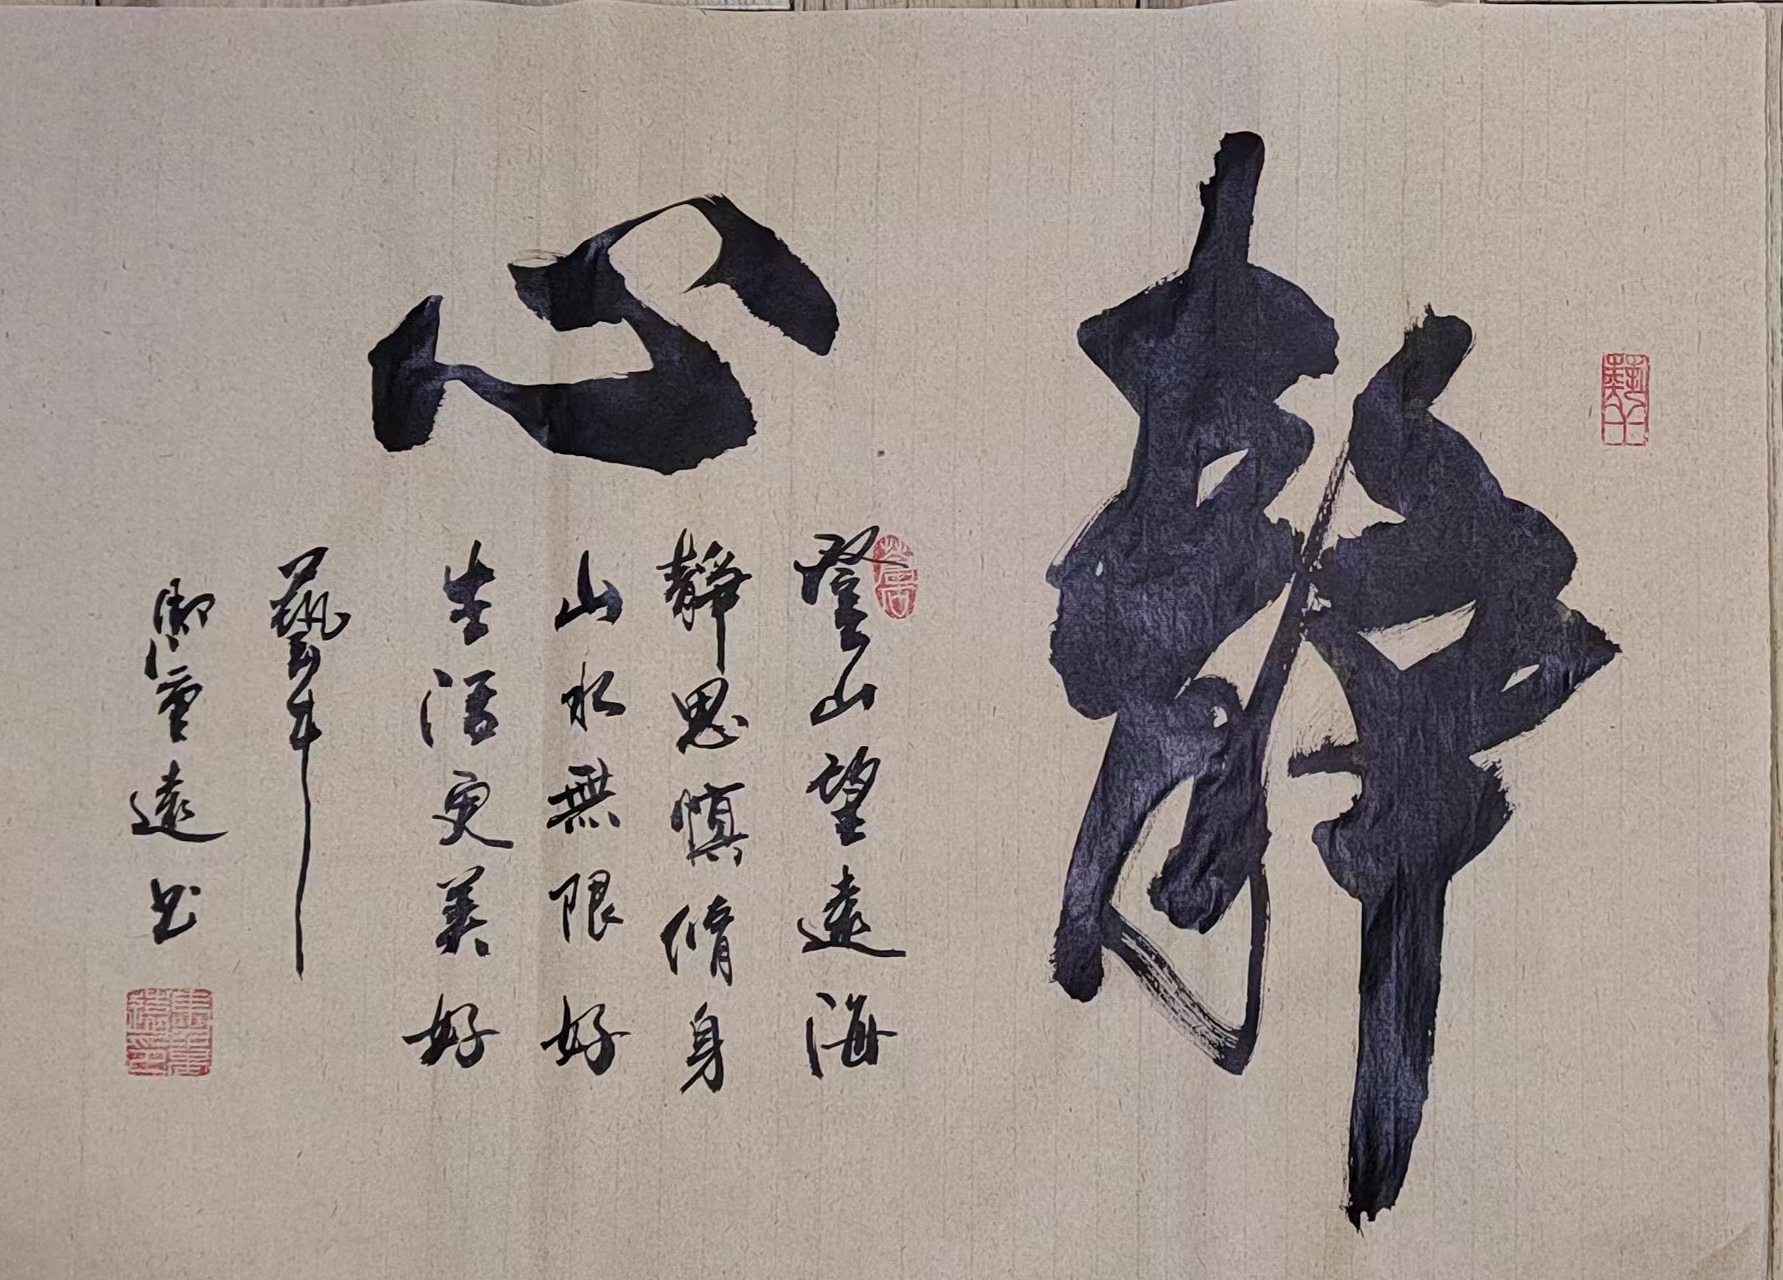 靜心
登山望遠海
靜思慎脩身
山水無限好
生活更美好
遠书